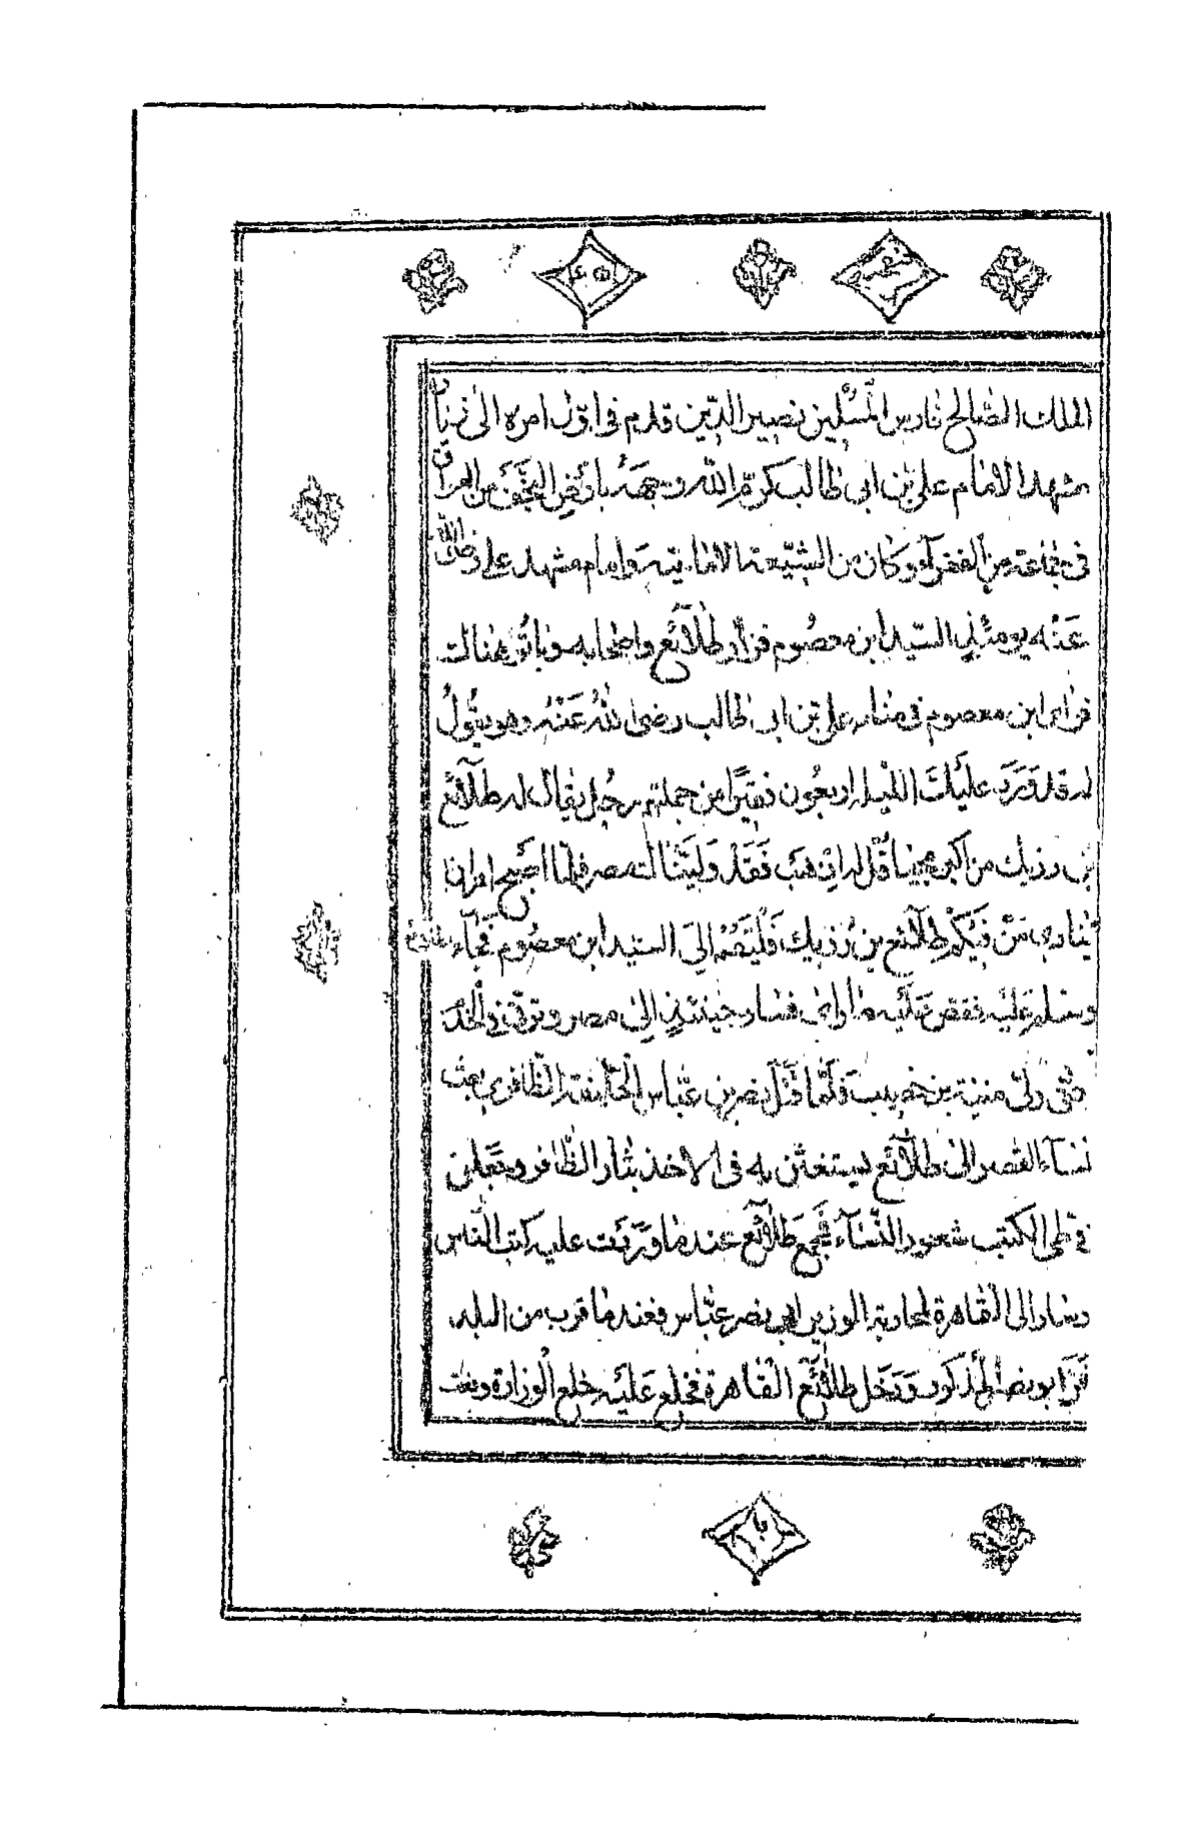 الملك الصّالح فارس المُسْلمين نصير الدّين قدم في اوّل امره الى زيارة
مشهد الامام علي بن ابي طالب كرّم الله وجهَهُ بارض النجَف من العراق
في جماعة من الفقرآء وكان من الشيّعة الاماميّة وامام مشهد علي رضي الله
عَنْه يومئذٍ السيّد ابن معصُوم فزار طلآئع واصحابه وباتُوا هناك
فراى ابن معصوم في منامه علي بن ابي طالب رضي اللهُ عَنْهُ وهو يقُولُ
له قد وَرَدَ عليْكَ الليْلة اربعُون فقيرًا من جملتهم رجُل يقال له طلآئع
بن رزيك من اكبر محبينا قُل له اذهَب فَقَد وَلّيْناك مصر فلمّا اصْبح امر ان
يُنادى مَنْ فيكُمْ طلآئع بن رُزيك فَلْيَقُمْ الى السيد ابن معصُوم فجآء طلائع
وسَلم عليْه فقص عَلَيه ما راى فسار حينئذٍ الى مصر وترقّى في الخدَم
حتّى ولّى منية بن خصيب فلمّا قَتَل نصر بن عبّاس الخليفة الظّافر بعث
نسآء القصر الى طلآئع يستغثن به في الاخذ بثار الظّافر وجعلن
في طي الكتب شعور النّسَآء فجمع طلآئع عند ما ورَدَت عليه كتب النّاس
وسار الى القاهرة لمحاربة الوزير ابي نصر عبّاس فعند ما قرب من البلد
فَرَّ ابو نصر المذكور وَدَخل طلآئع القاهرة فخلع عَليْه خلع الوزارة ونعت